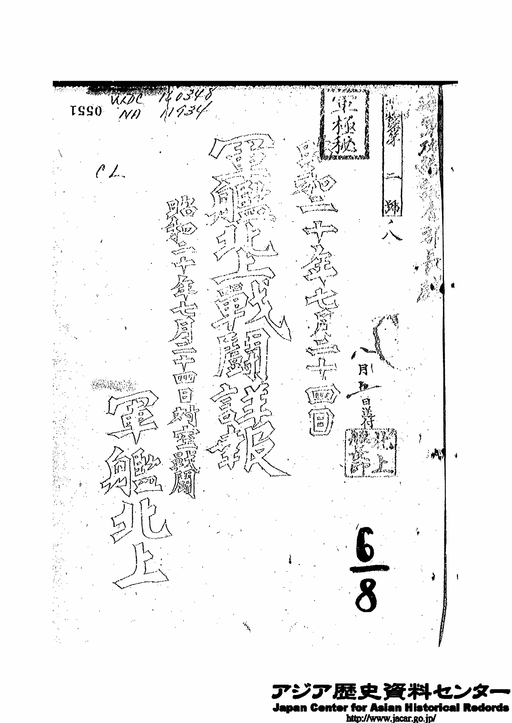 0551
WDC 160348
NA 11934
CL
軍極秘
第二號ノ八
昭和二十年七月二十四日
八月 日送付
北上艦長印
軍艦北上戰鬪詳報
昭和二十年七月二十四日対空戰鬪
軍艦北上
6/8
アジア歴史資料センター
Japan Center for Asian Historical Records
http://www.jacar.go.jp/